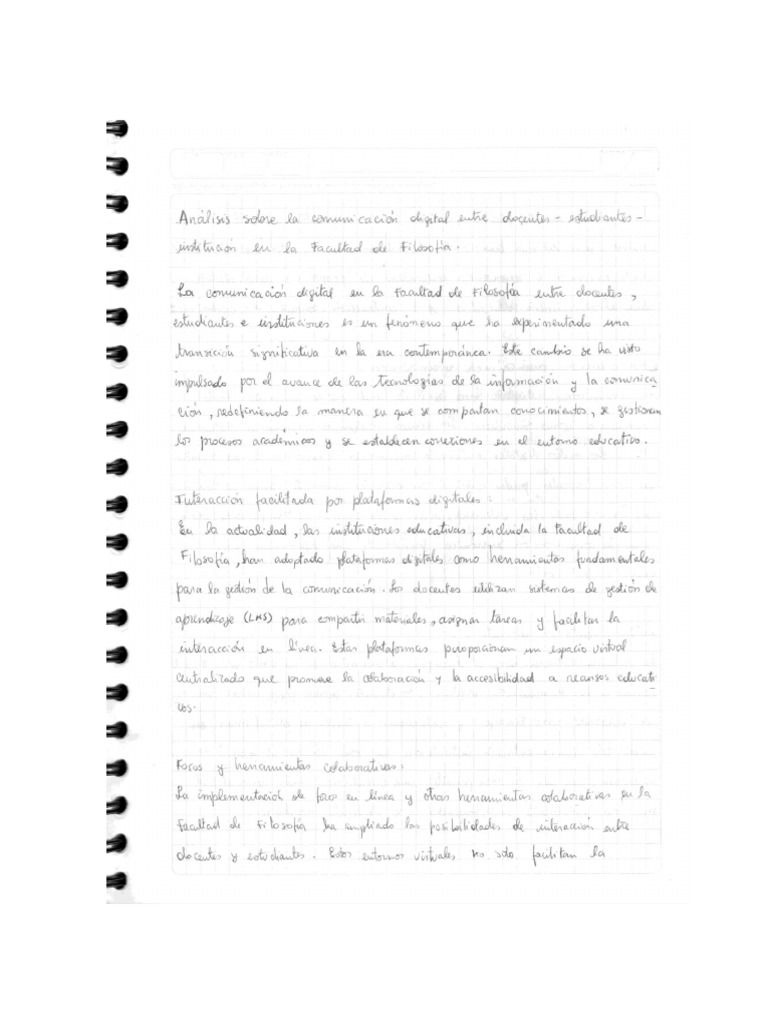 Análisis sobre la comunicación digital entre docentes - estudiantes -
institución en la Facultad de Filosofía.
La comunicación digital en la Facultad de Filosofía entre docentes,
estudiantes e instituciones es un fenómeno que ha experimentado una
transición significativa en la era contemporánea. Este cambio se ha visto
impulsado por el avance de las tecnologías de la información y la comunica
ción, redefiniendo la manera en que se compartan conocimientos, se gestionan
los procesos académicos y se establecen conexiones en el entorno educativo.
Interacción facilitada por plataformas digitales:
En la actualidad, las instituciones educativas, incluida la Facultad de
Filosofía, han adoptado plataformas digitales como herramientas fundamentales
para la gestión de la comunicación. Los docentes utilizan sistemas de gestión de
aprendizaje (LMS) para compartir materiales, asignar tareas y facilitar la
interacción en línea. Estas plataformas proporcionan un espacio virtual
centralizado que promueve la colaboración y la accesibilidad a recursos educati
vos.
Foros y herramientas colaborativas:
La implementación de foros en línea y otras herramientas colaborativas en la
Facultad de Filosofía ha ampliado las posibilidades de interacción entre
docentes y estudiantes. Estos entornos virtuales no solo facilitan la